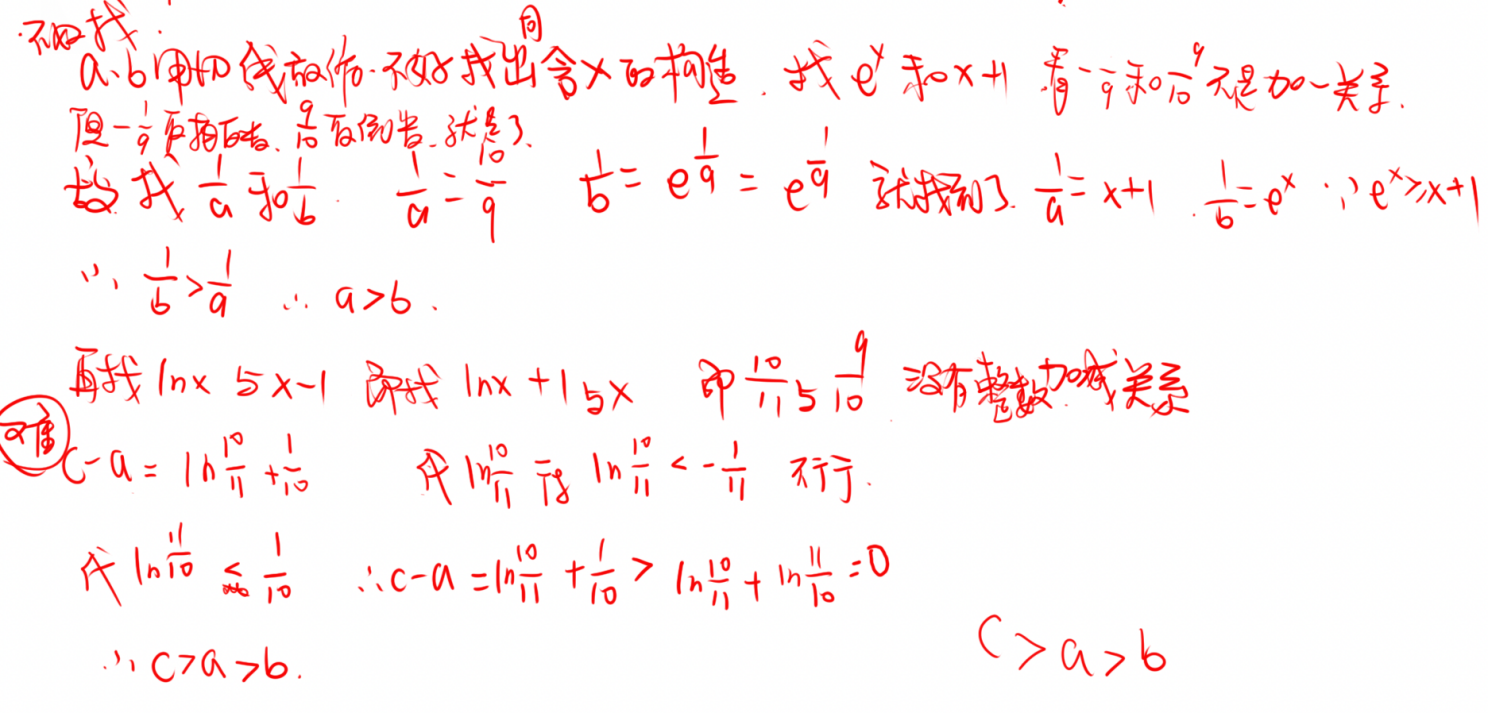 不好找.
a、b用切线放缩.不好找出同含x的构造.找e^x和x+1 看-1/9和9/10不是加一关系.
但-1/9更换百去、9/10取倒数.就是了.
故找 1/a 和 1/b. 1/a = 10/9 1/b = e^{1/9} = e^{1/9} 就找到了. 1/a = x+1 . 1/b = e^x ∵ e^x ≥ x+1
∴ 1/b > 1/a ∴ a>b .
再找 lnx 与 x-1 即找 lnx+1 与 x 即 10/11 与 9/10 没有整数加减关系
难 c-a = ln10/11 + 1/10 代 ln10/11 得 ln10/11 < -1/11 不行.
代 ln11/10 ≤ 1/10 ∴ c-a = ln10/11 + 1/10 > ln10/11 + ln11/10 = 0
∴ c>a>b. c>a>b